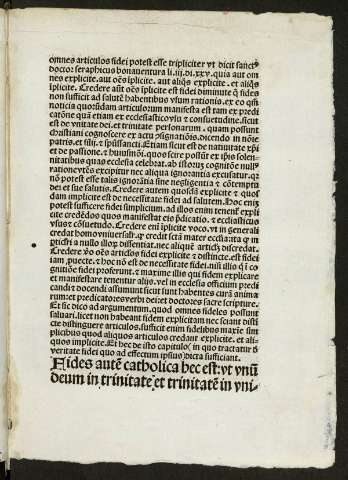 omnes articulos fidei potest esse tripliciter vt dicit sanctꝰ
doctor seraphicus bonauentura li.iij.di.xxv. quia aut om
nes explicite. aut oēs īplicite. aut aliqͥs explicite. et aliqͥs
īplicite. Credere autē oēs īplicite est fidei diminute q̄ fides
non sufficit ad salutē habentibus vsum rationis. ex eo qm̄
noticia quorūdam articulorum manifesta est tam ex predi
catōne quā etiam ex ecclesiasticorū consuetudine. sicut
est de vnitate dei. et trinitate personarum. quam possunt
christiani cognoscere ex actu pͦsignatiōis. dicendo in noīe
patris. et filij. et spūssancti. Etiam sicut est de natiuitate xp̄i
et de passione. et huiusmōi. quos scire possūt ex ip̄is solen-
nitatibus quas ecclesia celebrat. ab istorum cognitōe null
rationeutēs excipitur nec aliqua ignorantia excusatur. qꝛ
nō potest esse talis ignorātia sine negligentia et cōtemptu
dei et sue salutis. Credere autem quosdā explicite et quos
dam implicite est de necessitate fidei ad salutem. Hoc enim
potest sufficere fidei simplicium. ad illos enim tenent̄ expli
cite credēdos quos manifestat eis p̄dicatio. et ecclesiasticus
vsus et cōsuetudo. Credere eni īplicite voco. vt in generali
credat homo vniuersalͥr qͥdquid credit sctā mater ecclesia: ita qͥ in
articulari a nullo illorum dissentiat. nec aliquē articulū discredat.
Credere vͦo oēs articulos fidei explicite et distincte. est fidei
iam prouecte. et hoc nō est de necessitate fidei. nisi illis qͥ co
gnitiōe fidei proferunt. et maxime illis qui fidem explicare
et manifestare tenentur alijs. vel in ecclesia officium predi
candi et docendi assumunt sicut sunt habentes curā animar
rum: et predicatores verbi dei: et doctores sacre scripture.
Et sic dico ad argumentum. quod omnes fideles possunt
saluari. licet non habeant fidem explicitam nec sciant disti
cte distinguere articulos. sufficit enim fidelibus maxime sim
plicibus quod aliquos articulos credant explicite. et ali-
quos implicite. Et hec de isto capitulo in quo tractatur de
veritate fidei quo ad effectum ipsius dicta sufficiant.
Fides autē catholica hec est: vt vnū
deum in trinitate et trinitatē in vni-